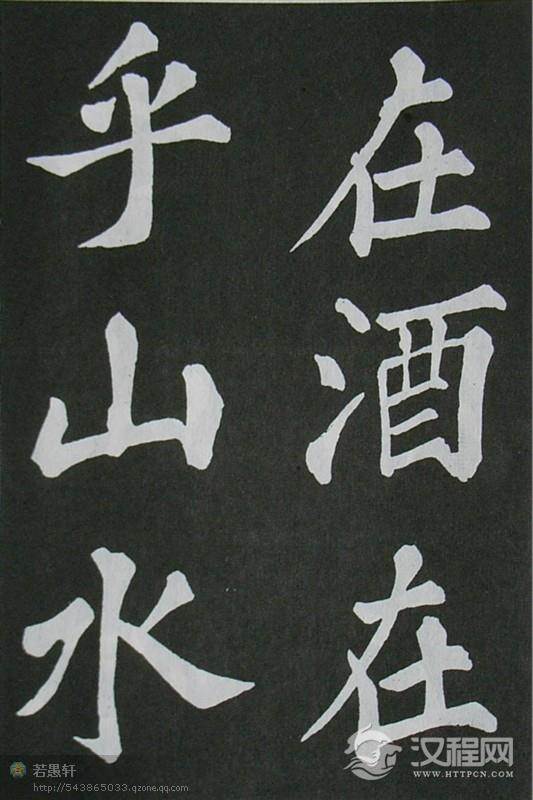 在酒在
乎山水
若愚轩
http://543865033.qzone.qq.com
汉程网
WWW.HTTPCN.COM